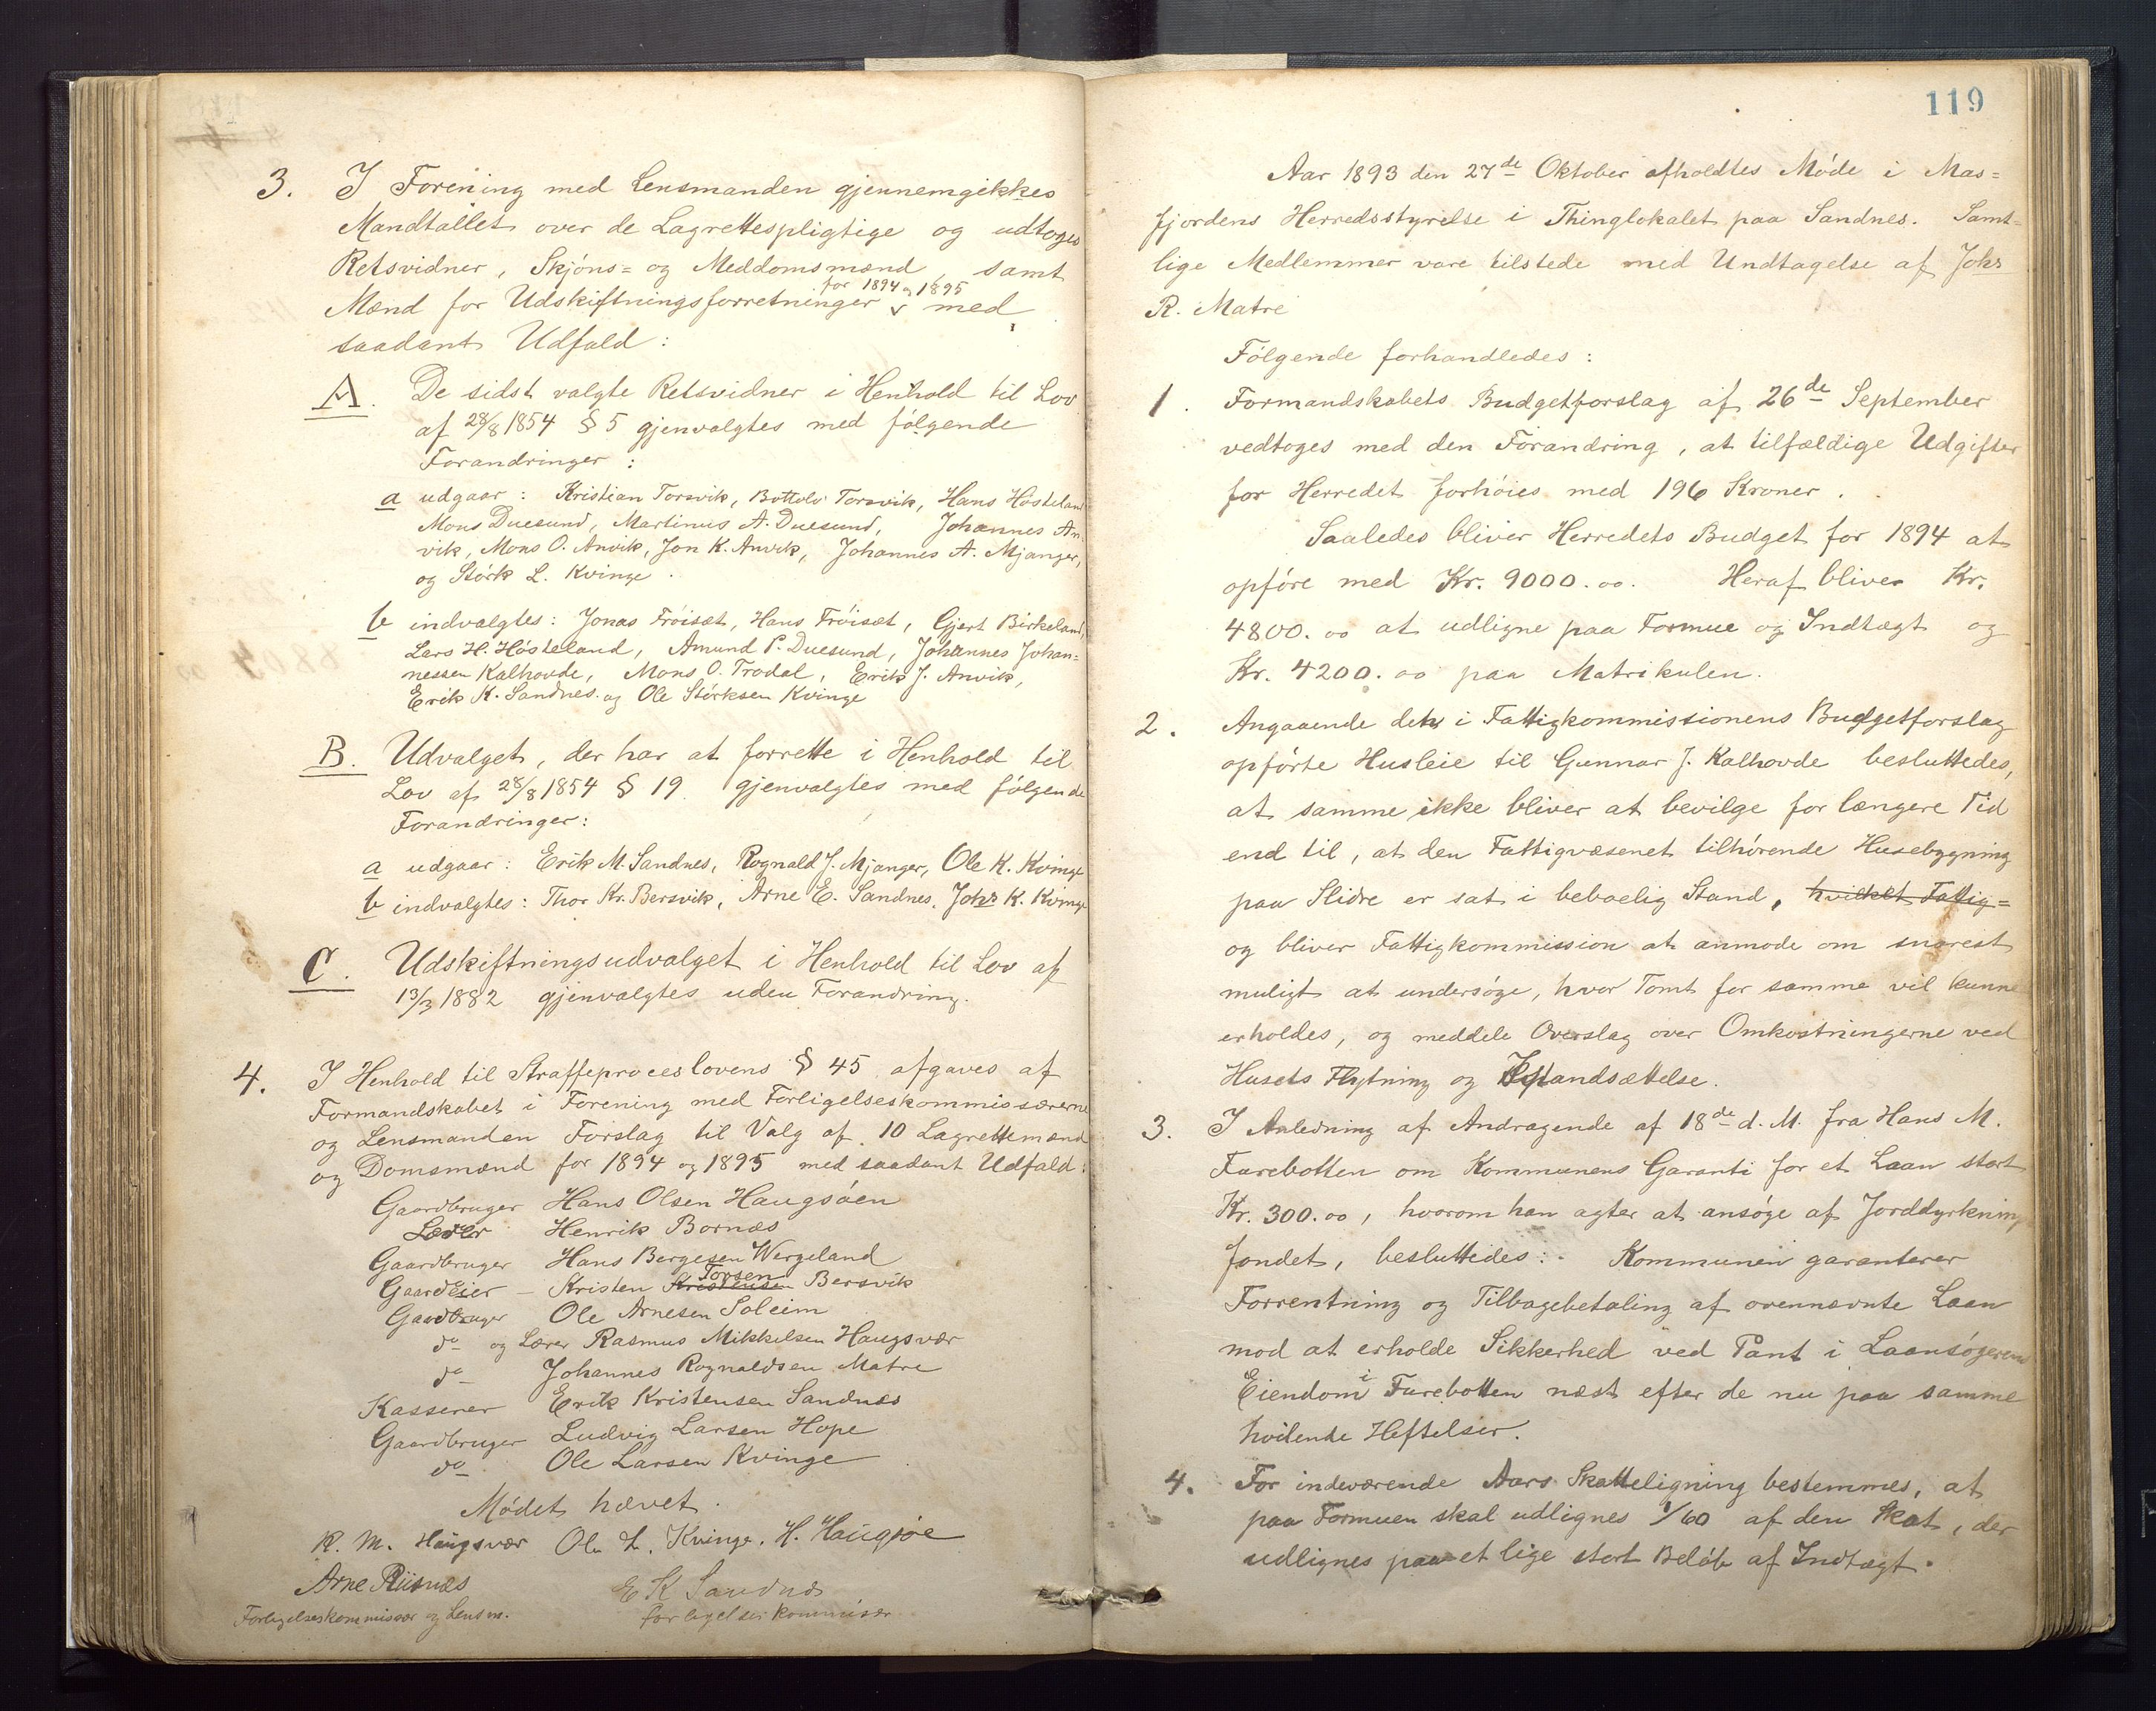 3. I Forening med Lensmanden gjennemgikkes
Mandtallet over de Lagrettespligtige og udtoges
Retsvidner, Skjöns= og Meddomsmænd, samt
Mænd for Udskiftningsforretninger for 1894 og 1895 med
saadant Udfald:
A. De sidst valgte Retsvidner i Henhold til Lov
af 28/8 1854 § 5 gjenvalgtes med følgende
Forandringer:
a udgaar: Kristian Torsvik, Bottolv Torsvik, Hans Hösteland
Mons Duesund, Martinus A. Duesund, Johannes An-
vik, Mons O. Anvik, Jon K. Anvik, Johannes A. Mjanger,
og Störk L. Kvinge.
b indvalgtes: Jonas Fröiset, Hans Fröiset, Gjert Birkeland,
Lars H. Hösteland, Amund P. Duesund, Johannes Johan=
nessen Kalhovde, Mons O. Trodal, Erik J. Anvik,
Erik K. Sandnes. og Ole Störksen Kvinge
B. Udvalget, der har at forrette i Henhold til
Lov af 28/8 1854 § 19 gjenvalgtes med følgende
Forandringer:
a udgaar: Erik M. Sandnes, Rognald J. Mjanger, Ole K. Kvinge
b indvalgtes: Thor Kr. Bersvik, Arne E. Sandnes, Johs K. Kvinge
C. Udskiftningsudvalget i Henhold til Lov af
13/3 1882 gjenvalgtes uden Forandring.
4. I Henhold til Straffeproceslovens § 45 afgaves af
Formandskabet i Forening med Forligelseskommissærerne
og Lensmanden Forslag til Valg af 10 Lagrettemænd
og Domsmænd for 1894 og 1895 med saadant Udfald:
Gaardbruger Hans Olsen Haugsöen
Lærer Henrik Bornæs
Gaardbruger Hans Bergesen Wergeland
Gaardeier – Kristen Kristensen Torsen Bersvik
Gardbruger Ole Arnesen Soleim
do og Lærer Rasmus Mikkelsen Haugsvær
do Johannes Rognaldsen Matre
Kasserer Erik Kristensen Sandnæs
Gaardbruger Ludvig Larsen Hope
do Ole Larsen Kvinge
Mödet hævet.
R. M. Haugsvær Ole L. Kvinge. H. Haugsöe
Arne Riisnæs E K Sandnæs
Forligelseskommissær og Lensm. forligelseskommisær
119
Aar 1893 den 27de Oktober afholdtes Möde i Mas=
fjordens Herredsstyrelse i Thinglokalet paa Sandnes. Samt=
lige Medlemmer vare tilstede med Undtagelse af Johs
R. Matre
Fölgende forhandledes:
1. Formandskabets Budgetforslag af 26de September
vedtoges med den Forandring, at tilfældige Udgifter
for Herredet forhöies med 196 Kroner.
Saaledes bliver Herredets Budget for 1894 at
opföre med Kr. 9000.00. Heraf bliver Kr.
4800.00 at udligne paa Formue og Indtægt og
Kr. 4200.00 paa Matrikulen.
2. Angaaende det i Fattigkommissionens Budgetforslag
opförte Husleie til Gunnar J. Kalhovde besluttedes,
at samme ikke bliver at bevilge for længere Tid
end til, at den Fattigvæsenet tilhörende Husebygning
paa Slidre er sat i beboelig Stand, hvilket Fattig=
og bliver Fattigkommission at anmode om snarest
muligt at undersöge, hvor Tomt for samme vil kunne
erholdes, og meddele Overslag over Omkostningerne ved
Husets Flytning og Istandsættelse.
3. I Anledning af Andragende af 18de d. M. fra Hans M.
Furebotten om Kommunens Garanti for et Laan stort
Kr. 300.00, hvorom han agter at ansöge af Jorddyrknings
fondet, besluttedes: Kommunen garanterer
Forrentning og Tilbagebetaling af ovennævnte Laan
mod at erholde Sikkerhed ved Pant i Laansögerens
Eiendom i Furebotten næst efter de nu paa samme
hvilende Heftelser.
4. For indeværende Aars Skatteligning bestemmes, at
paa Formuen skal udlignes 1/60 af den Skat, der
udlignes paa et lige stort Belöb af Indtægt.